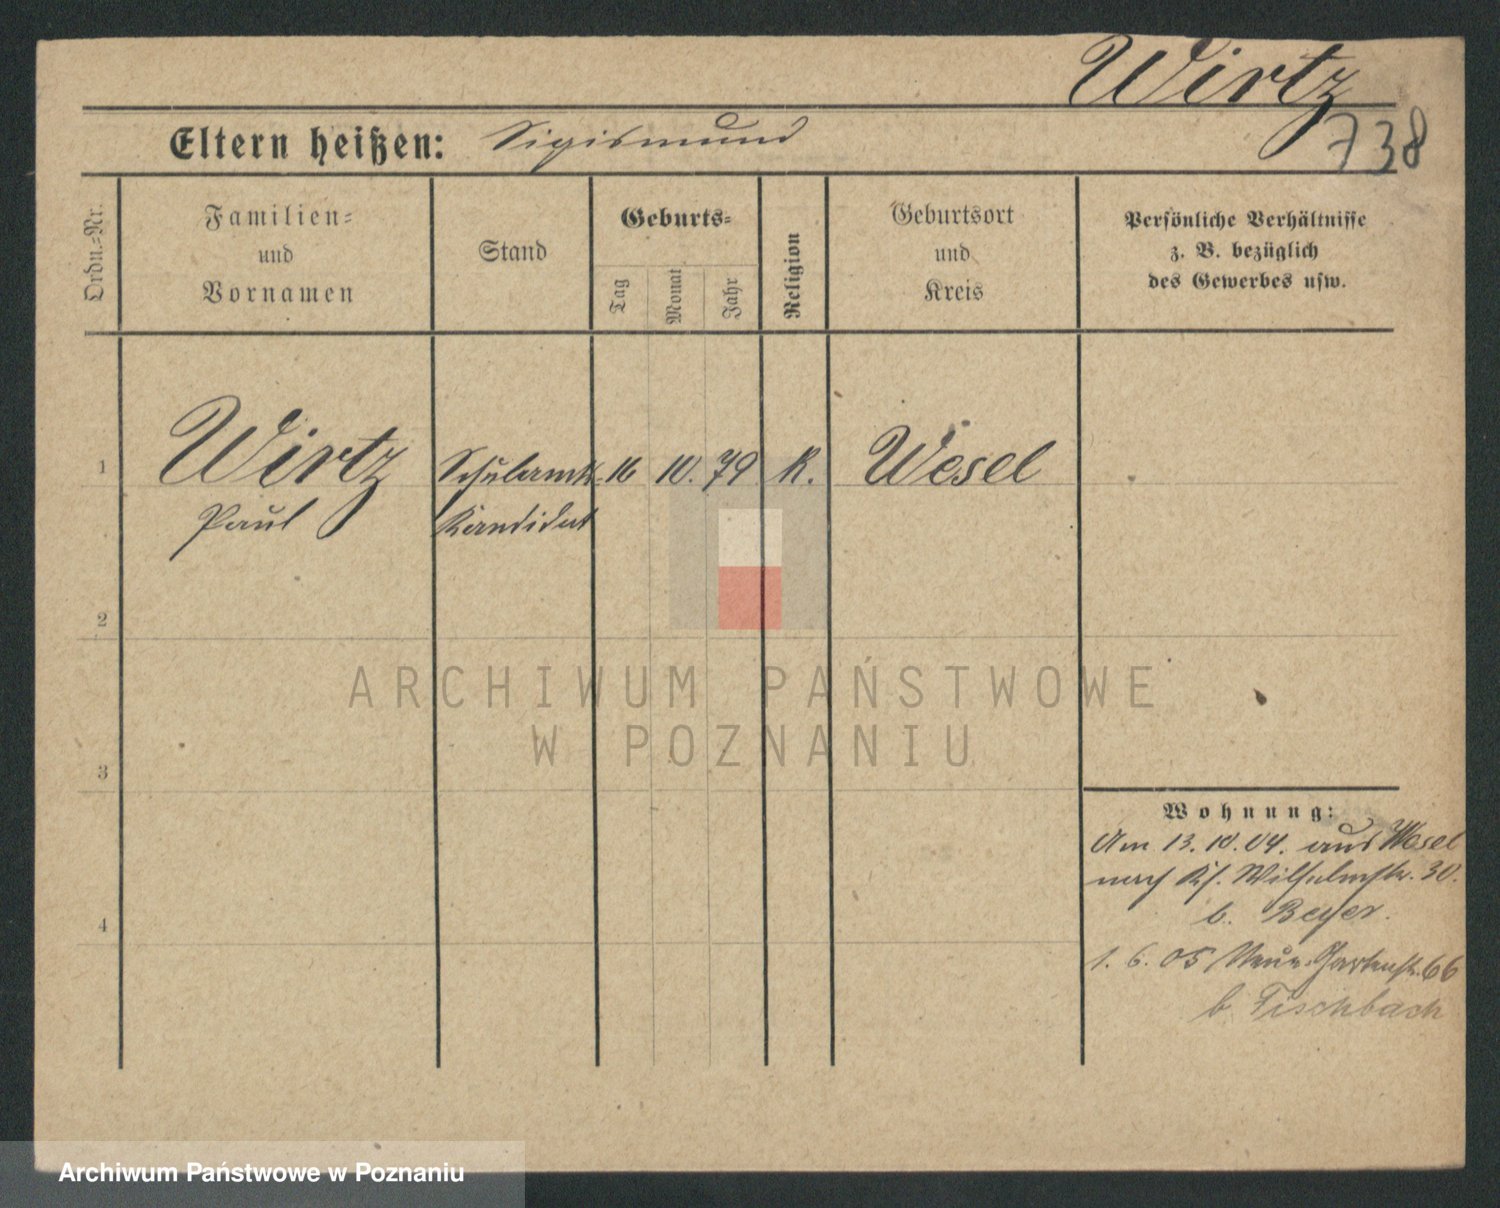 Wirtz
738
Eltern heißen: Sigismund
Ordn.-Nr.
Familien-
und
Vornamen
Stand
Geburts-
Tag
Monat
Jahr
Religion
Geburtsort
und
Kreis
Persönliche Verhältnisse
z. B. bezüglich
des Gewerbes usw.
1 Wirtz Schulamts- 16 10. 79 K. Wesel
Paul Kandidat
2
3
4
Wohnung:
Am 13. 10. 04. aus Wesel
nach Ks. Wilhelmstr. 30.
b. Beyer.
1. 6. 05 Neue Gartenstr. 66
b Fischbach
ARCHIWUM PAŃSTWOWE
W POZNANIU
Archiwum Państwowe w Poznaniu